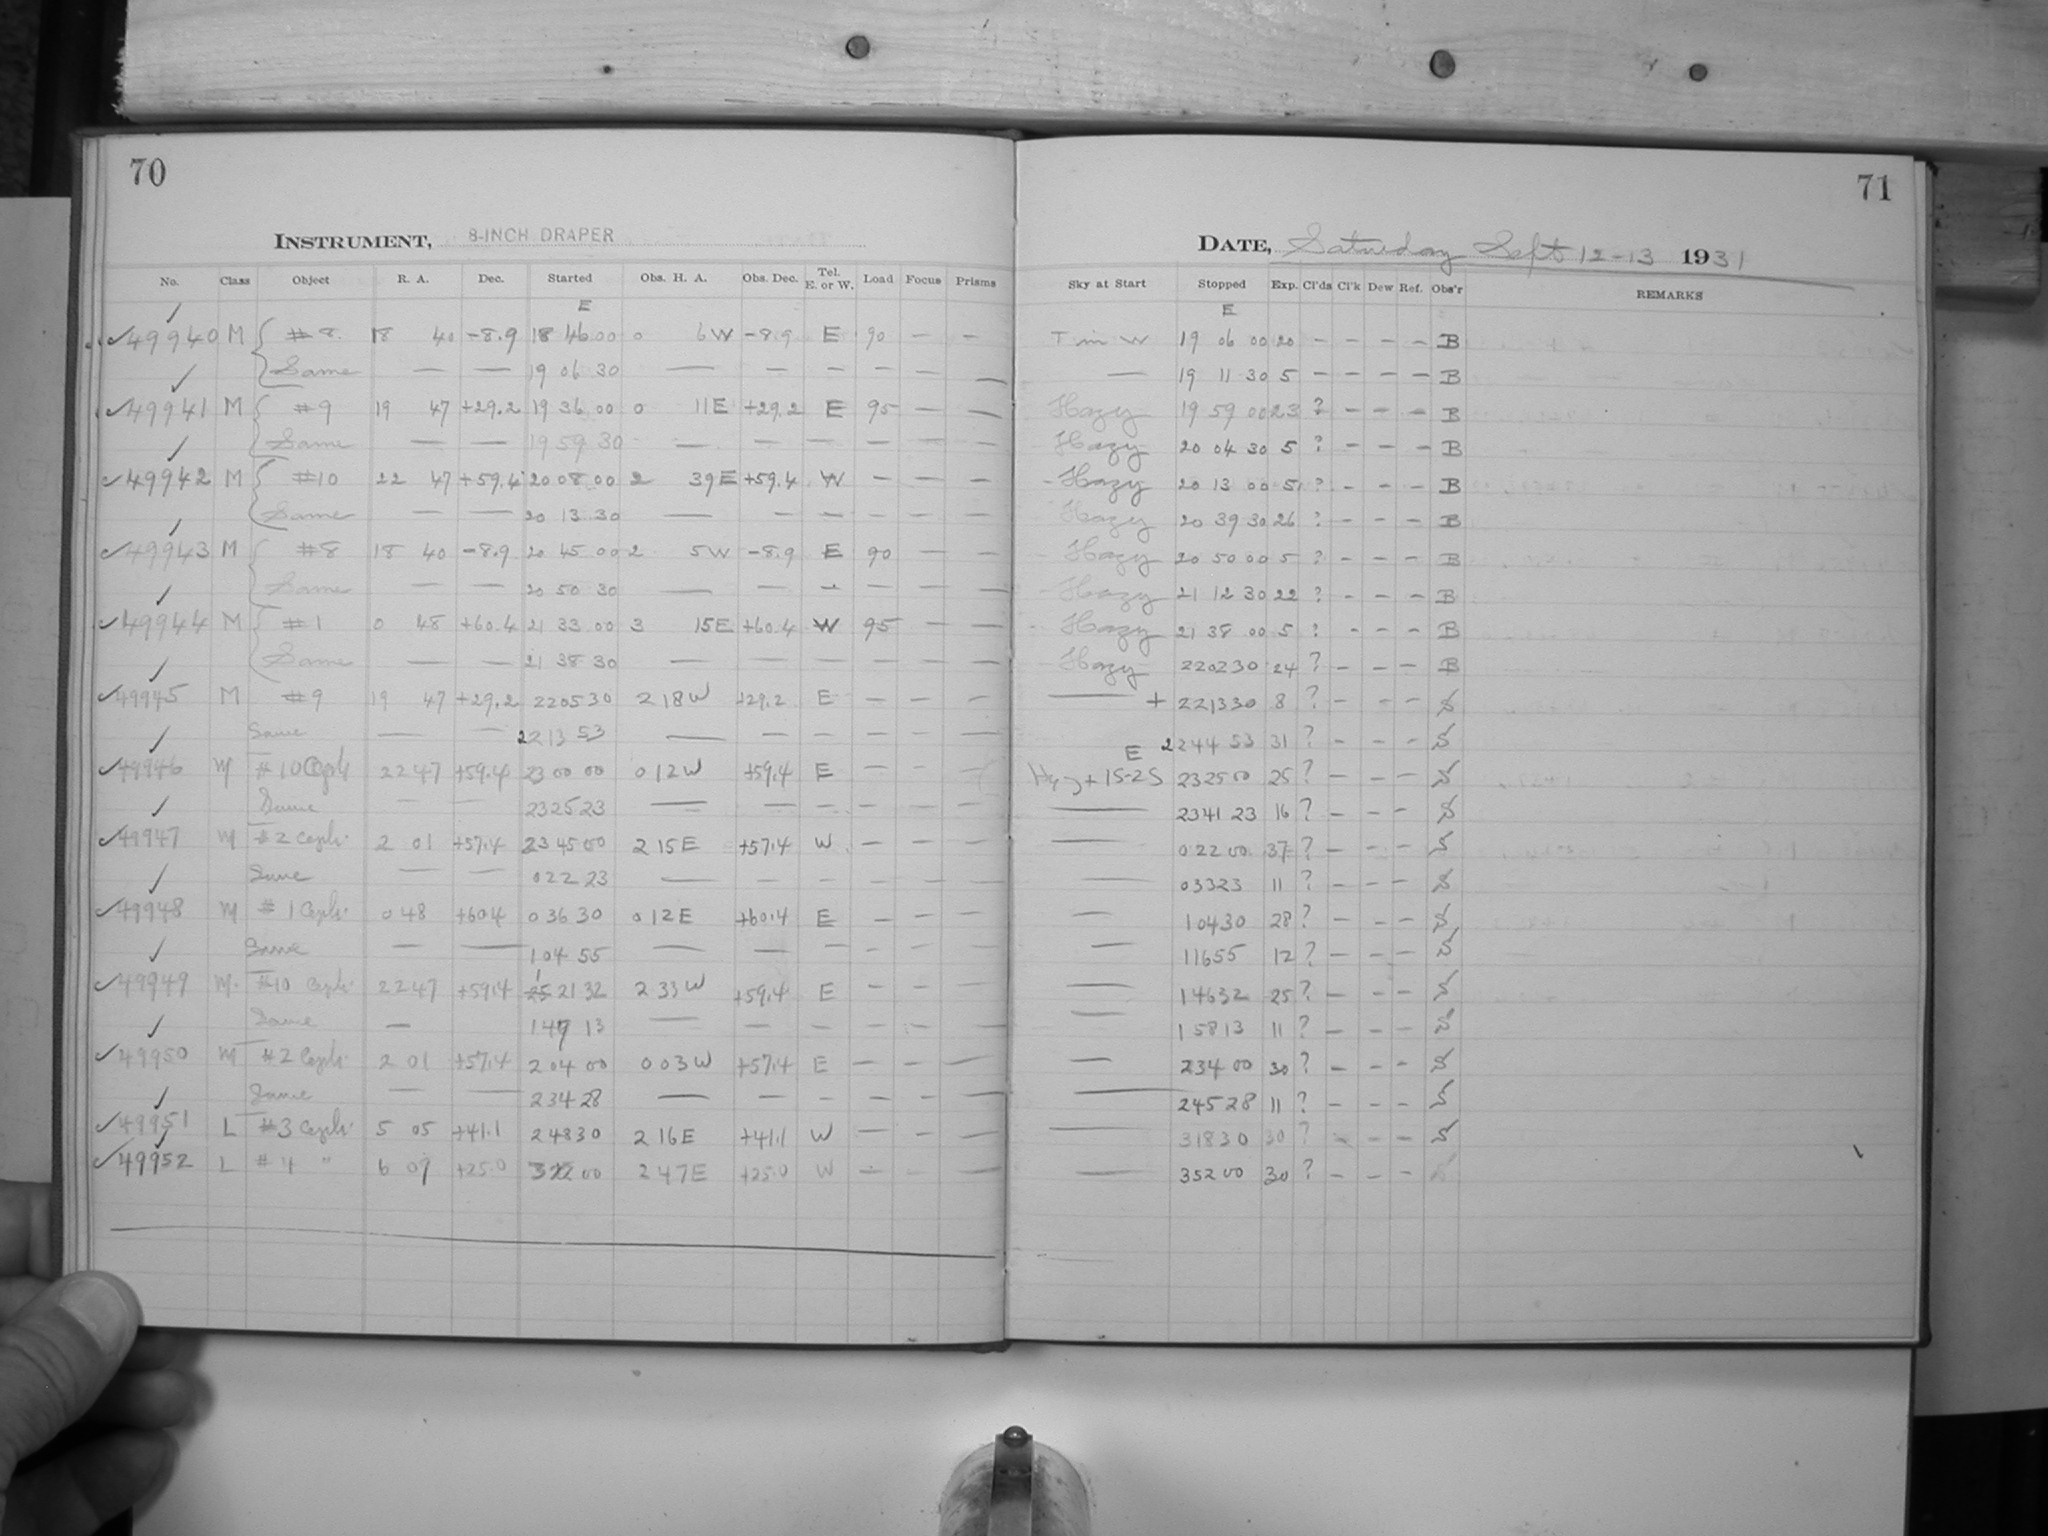 70
INSTRUMENT, 8-INCH DRAPER
No. Class Object R. A. Dec. Started Obs. H. A. Obs. Dec. Tel. E. or W. Load Focus Prisms
E
49940 M #8. 18 40 -8.9 18 46 00 0 6W -8.9 E 90 — —
Same — — 19 06 30 — — — — — —
49941 M #9 19 47 +29.2 19 36 00 0 11E +29.2 E 95 — —
Same — — 19 59 30 — — — — — —
49942 M #10 22 47 +59.4 20 08 00 2 39E +59.4 W — — —
Same — — 20 13 30 — — — — — —
49943 M #8 18 40 -8.9 20 45 00 2 5W -8.9 E 90 — —
Same — — 20 50 30 — — — — — —
49944 M #1 0 48 +60.4 21 33 00 3 15E +60.4 W 95 — —
Same — — 21 38 30 — — — — — —
49945 M #9 19 47 +29.2 22 05 30 2 18W +29.2 E — — —
Same — — 22 13 53 — — — — — —
49946 M #10 Ceph 22 47 +59.4 23 00 00 0 12W +59.4 E — — —
Same — — 23 25 23 — — — — — —
49947 M #2 Ceph. 2 01 +57.4 23 45 00 2 15E +57.4 W — — —
Same — — 0 22 23 — — — — — —
49948 M #1 Ceph. 0 48 +60.4 0 36 30 0 12E +60.4 E — — —
Same — — 1 04 55 — — — — — —
49949 M #10 Ceph. 22 47 +59.4 1 21 32 2 33W +59.4 E — — —
Same — 1 47 13 — — — — — —
49950 M #2 Ceph. 2 01 +57.4 2 04 00 0 03W +57.4 E — — —
Same — — 2 34 28 — — — — — —
49951 L #3 Ceph. 5 05 +41.1 2 48 30 2 16E +41.1 W — — —
49952 L #4 " 6 07 +25.0 3 22 00 2 47E +25.0 W — — —
71
DATE, Saturday Sept 12-13 1931
Sky at Start Stopped Exp. Cl'ds Cl'k Dew Ref. Obs'r REMARKS
E
T in W 19 06 00 20 — — — — B
— 19 11 30 5 — — — — B
Hazy 19 59 00 23 ? — — — B
Hazy 20 04 30 5 ? — — — B
Hazy 20 13 00 5 ? — — — B
Hazy 20 39 30 26 ? — — — B
Hazy 20 50 00 5 ? — — — B
Hazy 21 12 30 22 ? — — — B
Hazy 21 38 00 5 ? — — — B
Hazy 22 02 30 24 ? — — — B
— + 22 13 30 8 ? — — — S
E 22 44 53 31 ? — — — S
Hzy + 15-25 23 25 00 25 ? — — — S
— 23 41 23 16 ? — — — S
— 0 22 00 37 ? — — — S
— 0 33 23 11 ? — — — S
— 1 04 30 28 ? — — — S
— 1 16 55 12 ? — — — S
— 1 46 32 25 ? — — — S
— 1 58 13 11 ? — — — S
— 2 34 00 30 ? — — — S
— 2 45 28 11 ? — — — S
— 3 18 30 30 ? — — — S
— 3 52 00 30 ? — — — S